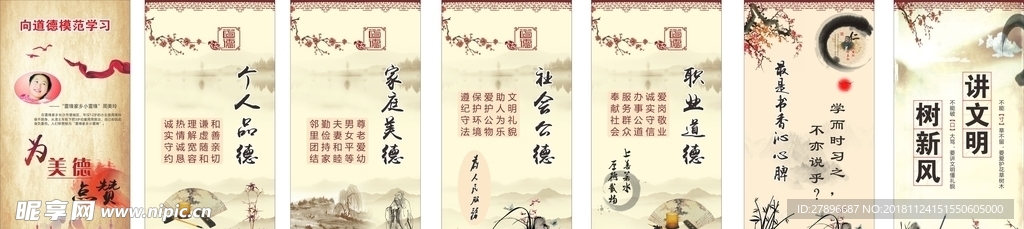 向道德模范学习
——“雷锋家乡小雷锋”周美玲
为
美德
点赞
个人品德
和善亲切
谦虚随和
理解宽容
热情诚恳
诚实守约
家庭美德
尊老爱幼
男女平等
夫妻和睦
勤俭持家
邻里团结
社会公德
文明礼貌
助人为乐
爱护公物
保护环境
遵纪守法
为人民服务
职业道德
爱岗敬业
诚实守信
办事公道
服务群众
奉献社会
上善若水
厚德载物
最是书香沁心脾
学而时习之，
不亦说乎？
讲文明
树新风
昵享网 www.nipic.cn
ID:27896687 NO:20181124151550605000